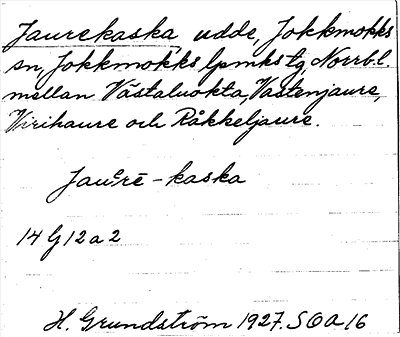 Jaurekaska udde, Jokkmokks
sn, Jokkmokks lpmks tg, Norrb.l.
mellan Västaluokta, Vastenjaure,
Virihaure och Råkkeljaure.
Jauᵉrē-kaska
14 G 12 a 2
H. Grundström 1927. SOA 16